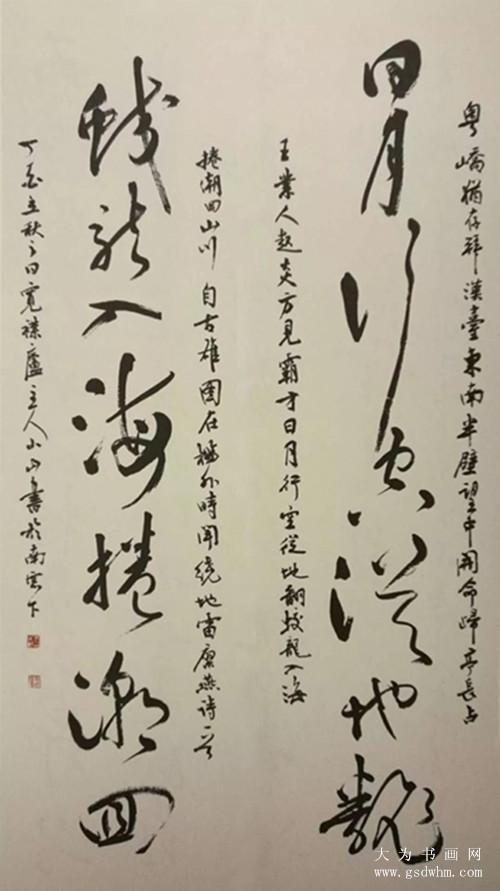 粤嶠猶存拜漢臺東南半壁望中開命歸亭長占
日月行空從地翻
王業人起炎方見霸才日月行空從地翻蛟龍入海
捲潮回山川自古雄圖在檻外時聞繞地雷廖燕诗一首
蛟龍入海捲潮回
丁酉立秋之日寬襟廬主人小山書於南雲下
大为书画网
www.gsdwhm.com